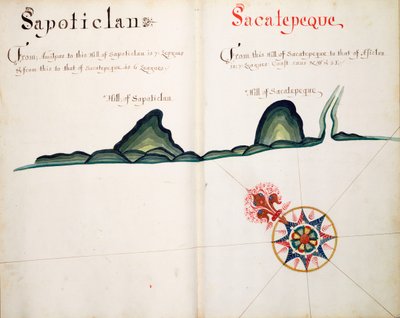 Sapoticlan
From, Amilpas to this Hill of Sapoticlan is 7: Leagues
& from this to that of Sacatepeque is 6 Leagues:
Hill, of Sapoticlan
Sacatepeque
From this Hill of Sacatepeque to that of
is 7 Leagues: Coast runs
Hill of Sacatepeque